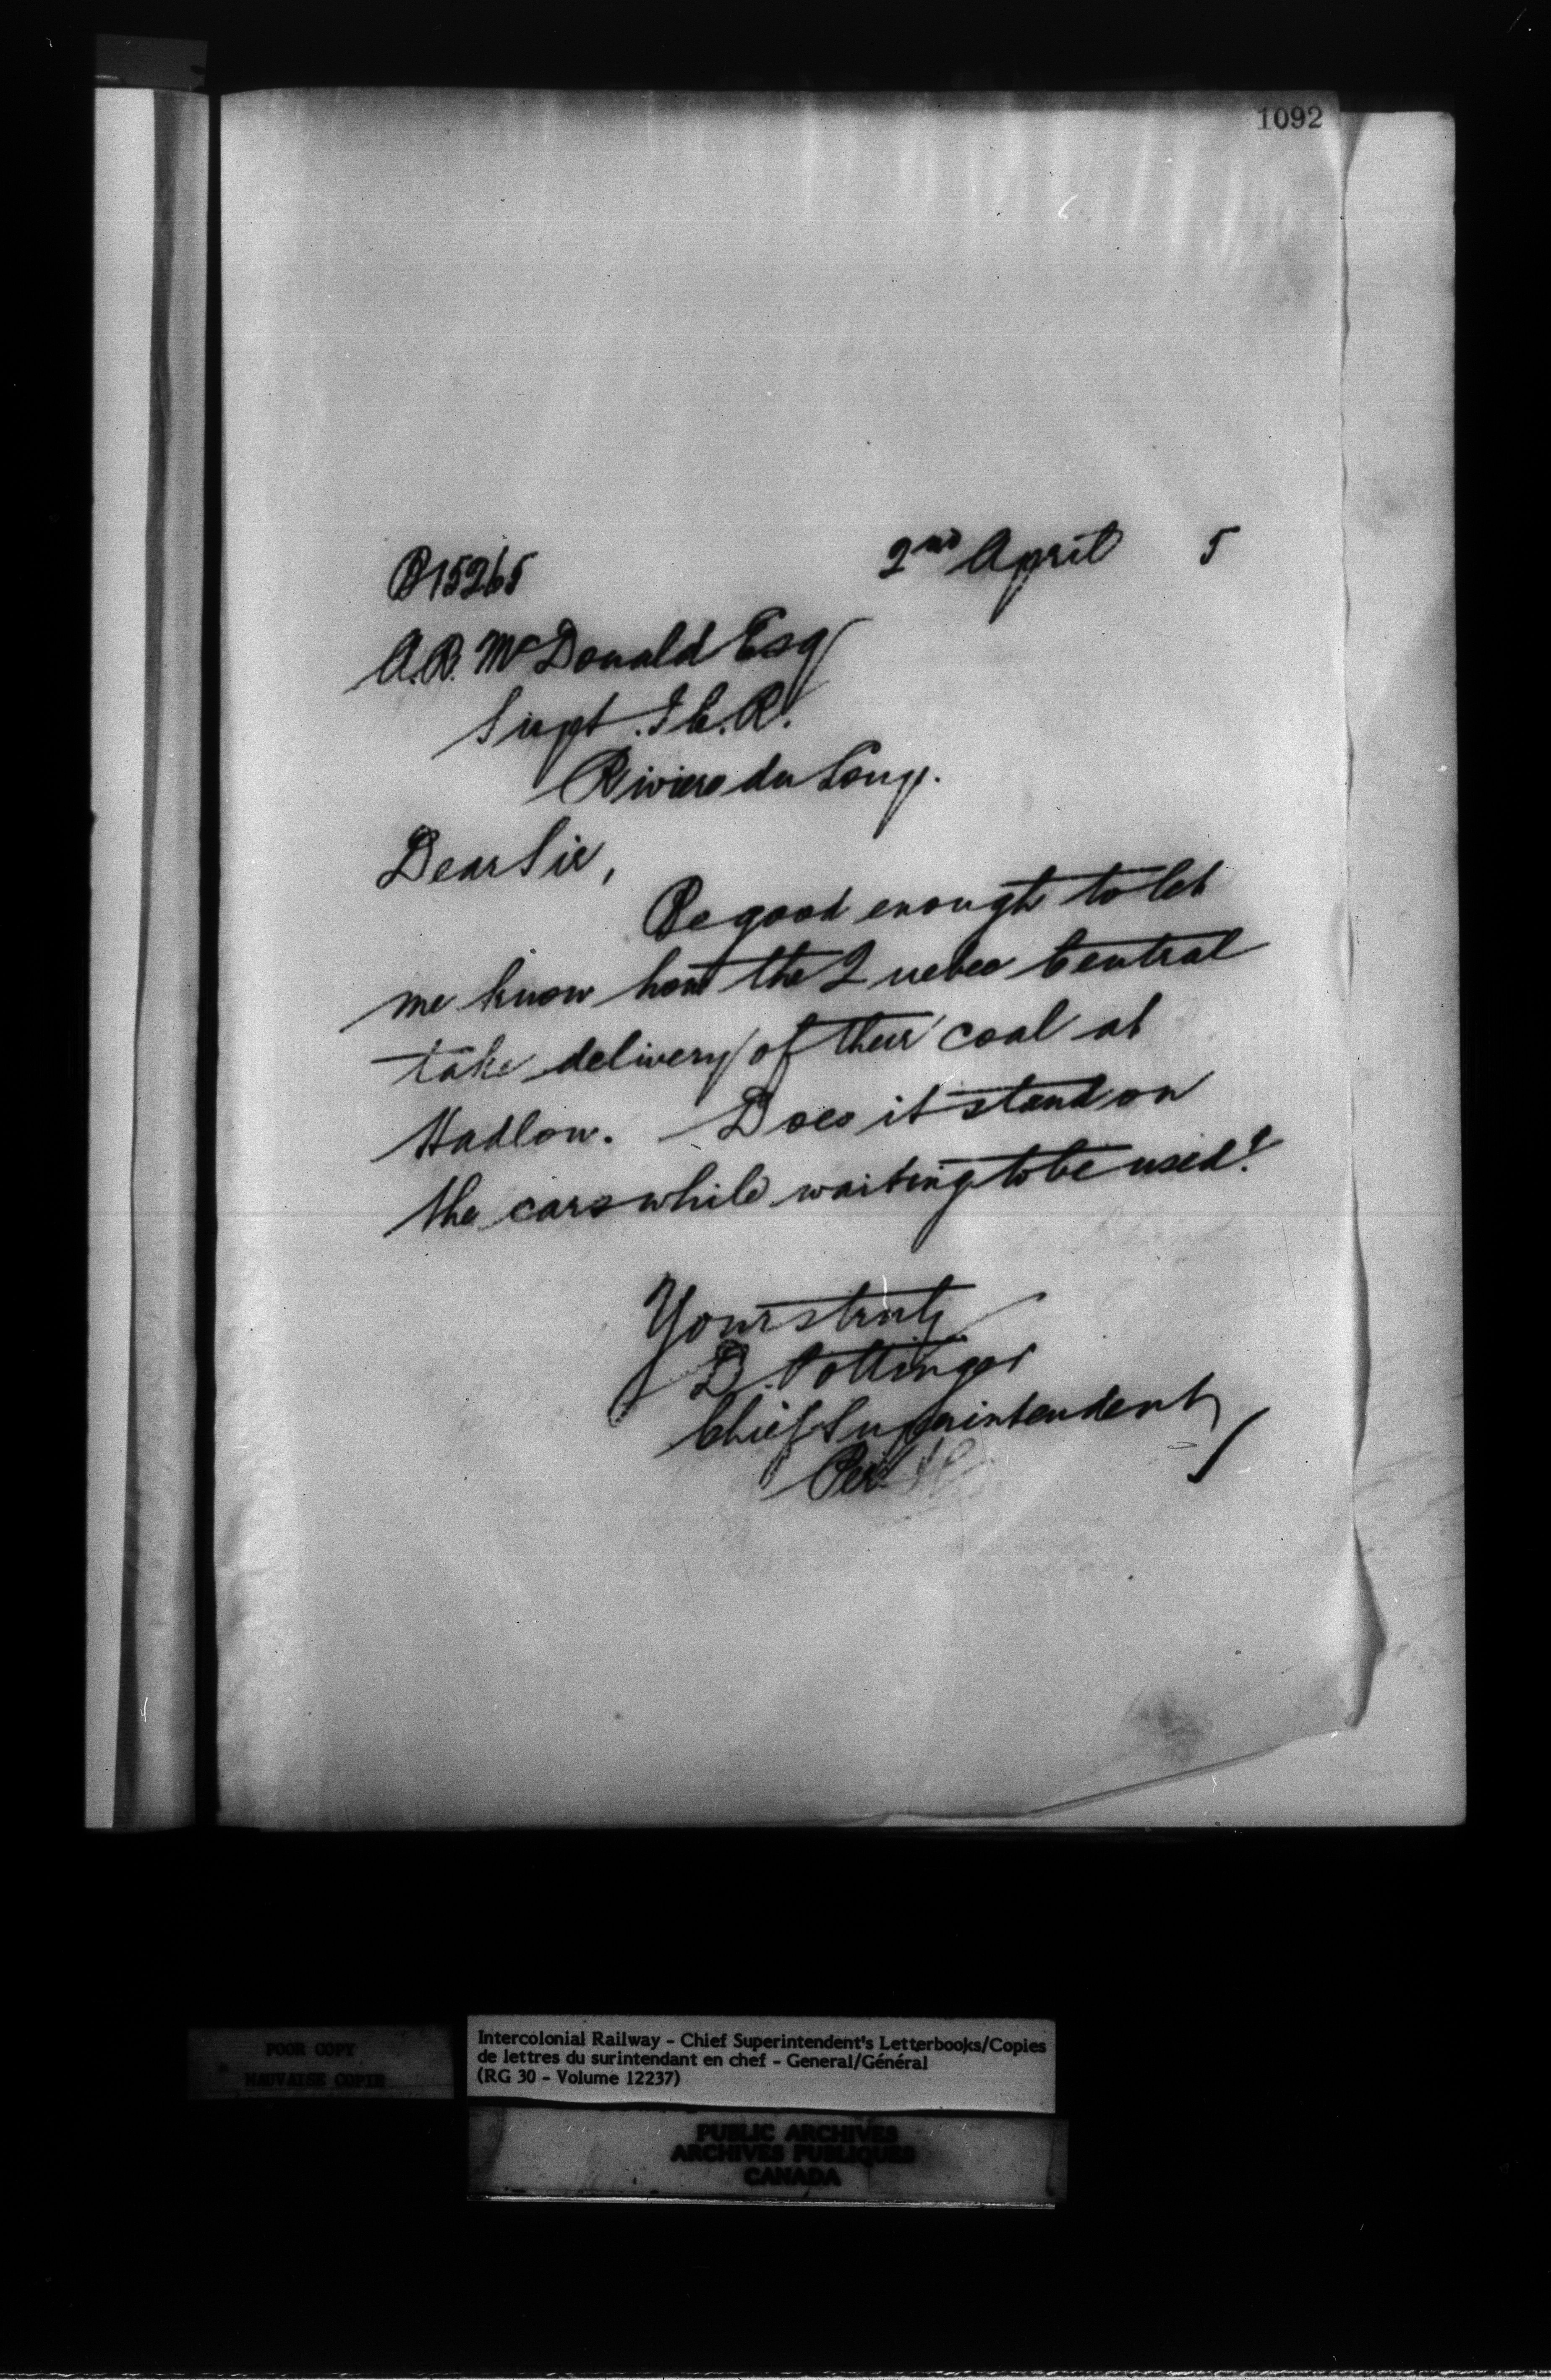 1092
B15265
2nd April 5
A.R. McDonald Esq
Supt. I.C.R.
Riviere du Loup.
Dear Sir,
Be good enough to let
me know how the Quebec Central
take delivery of their coal at
Hadlow. Does it stand on
the cars while waiting to be used?
Yours truly
D. Pottinger
Chief Superintendent
Per.
POOR COPY
MAUVAISE COPIE
Intercolonial Railway - Chief Superintendent's Letterbooks/Copies
de lettres du surintendant en chef - General/Général
(RG 30 - Volume 12237)
PUBLIC ARCHIVES
ARCHIVES PUBLIQUES
CANADA